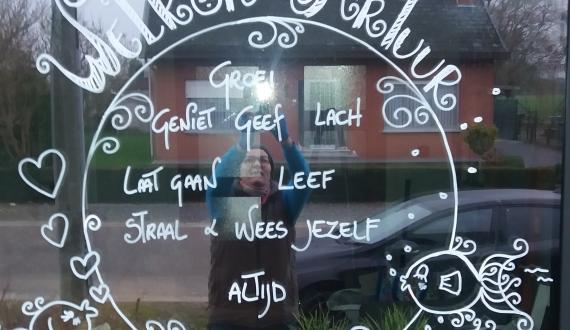 Welkom Arthuur
Groei
Geniet Geef Lach
Laat gaan Leef
Straal & Wees jezelf
Altijd